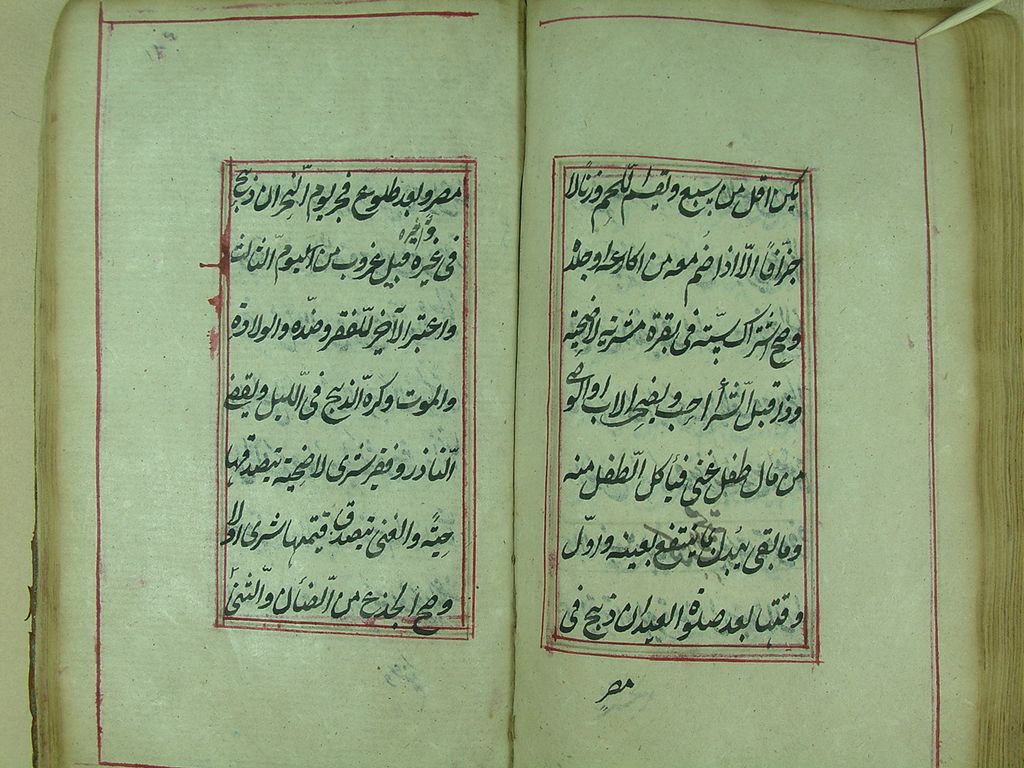 يكن اقل من سبع ويقسم اللحم وزنا لا
جزافا الا اذا ضم معه من اكارعه او جلده
وصح اشتراك ستة فى بقرة مشترية لاضحية
وذا قبل الشرا احب ويضحى الاب او الوصى
من مال طفل غنى فيأكل الطفل منه
وما بقى يبدل بما ينتفع بعينه واول
وقتها بعد صلوة العيد ان ذبح فى
مصر
مصر وبعد طلوع فجر يوم النحر ان ذبح
فى غيره وآخره قبل غروب من اليوم الثالث
واعتبر الآخر للفقر وضده والولادة
والموت وكره الذبح فى الليل ويقضى
الناذر وفقير شرى لاضحية بتصدقها
حية والغنى بتصدق قيمتها شرى اولا
وصح الجذع من الضأن والثنى